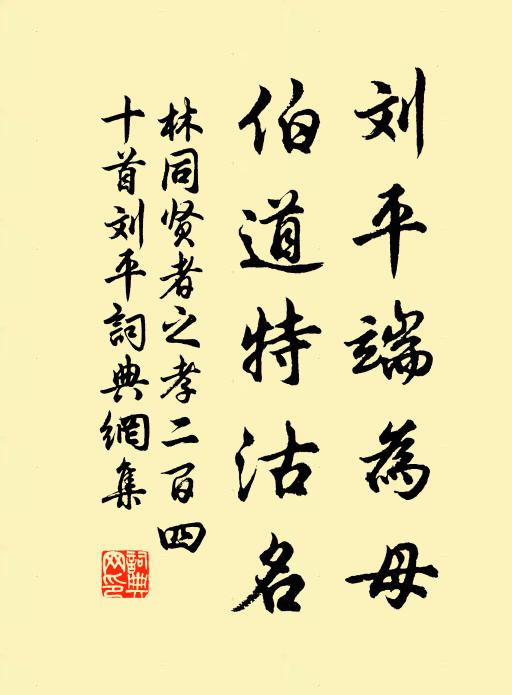 刘平端為母
伯道特沽名
林同贤者之孝二百四
十首刘平詞典網集
詞典
网印